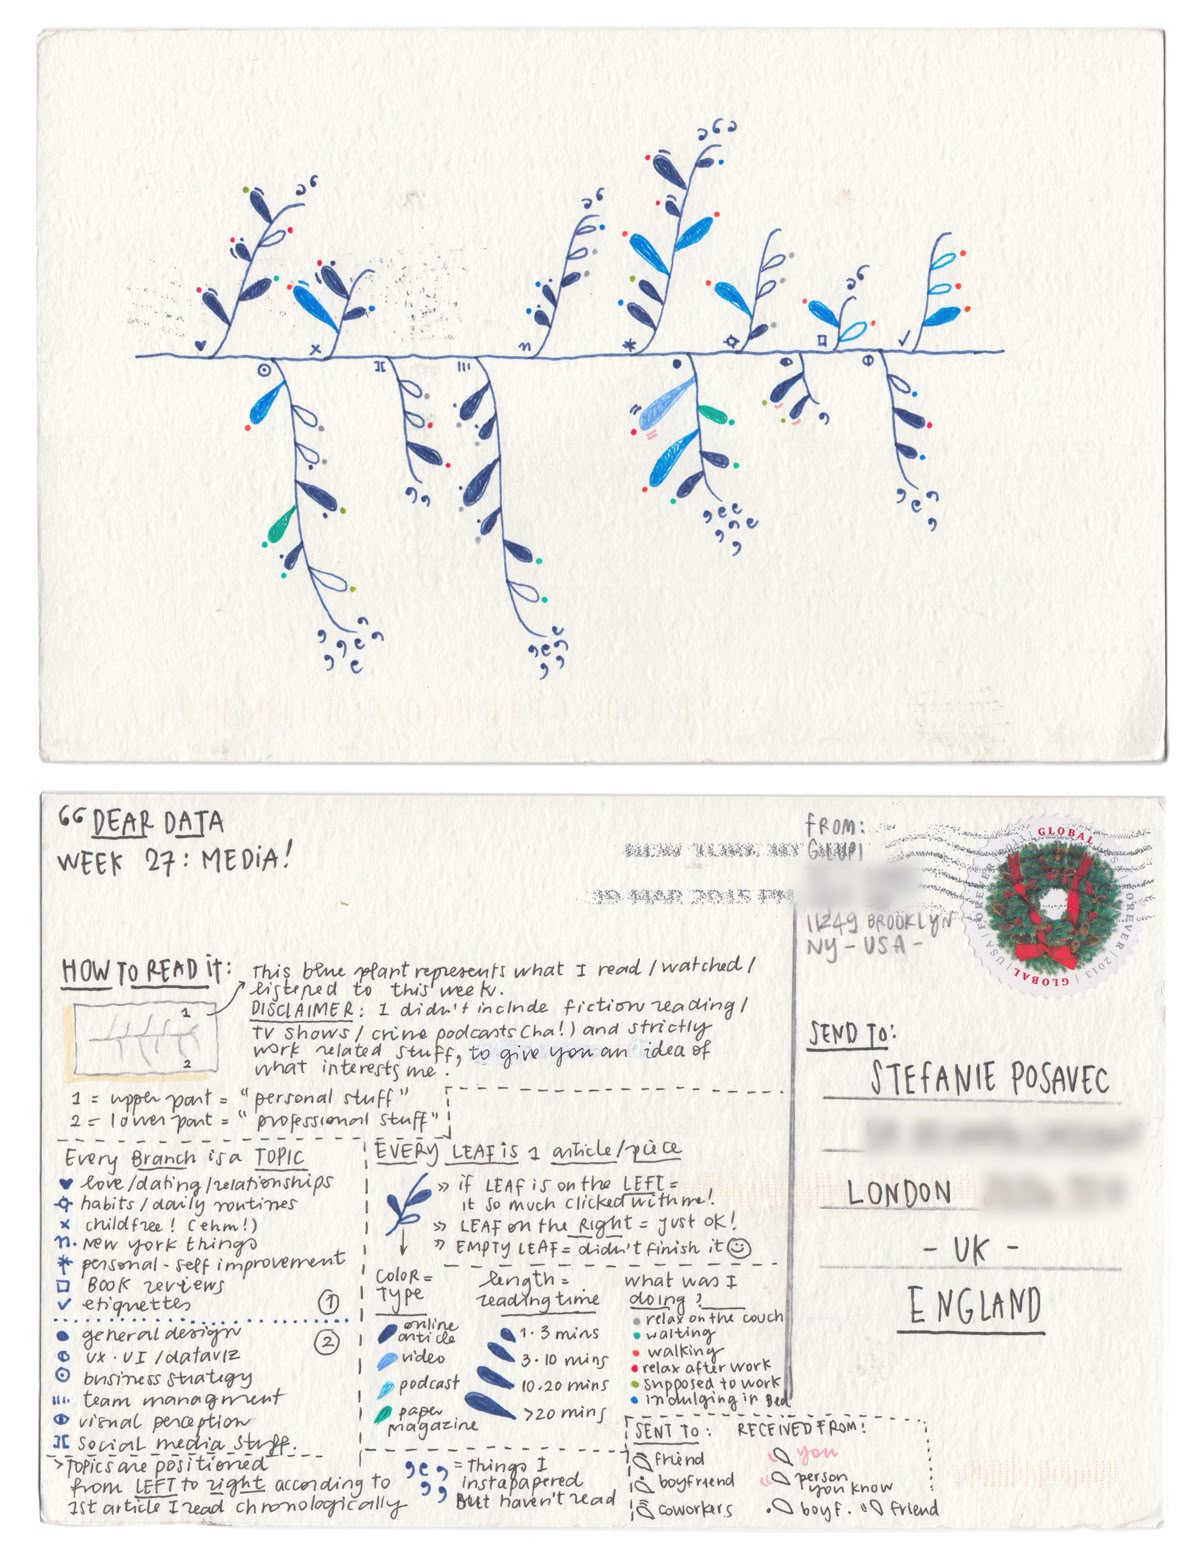 DEAR DATA
WEEK 27: MEDIA!
NEW YORK, NY
19 MAR 2015 PM
FROM:
11249 BROOKLYN
NY - USA -
GLOBAL
FOREVER | 2013
USA | FOREVER
GLOBAL
HOW TO READ iT:
This blue plant represents what I read / watched /
listened to this week.
DISCLAIMER: I didn't include fiction reading /
TV shows / crime podcasts (ha!) and strictly
work related stuff, to give you an idea of
what interests me.
1
2
1 = upper part = "personal stuff"
2 = lower part = "professional stuff"
Every Branch is a TOPIC
love / dating / relationships
habits / daily routines
childfree! (ehm!)
New york things
personal - self improvement
BOOK reviews
etiquettes
1
general design
UX · UI / dataviz
2
business strategy
team managment
visual perception
social media stuff.
> Topics are positioned
from LEFT to right according to
1st article I read chronologically
EVERY LEAF iS 1 article / piece
» if LEAF is on the LEFT =
it so much clicked with me!
» LEAF on the Right = just ok!
» EMPTY LEAF = didn't finish it
COLOR =
TYPE
online
article
video
podcast
paper
magazine
length =
reading time
1 · 3 mins
3 · 10 mins
10 · 20 mins
>20 mins
what was I
doing?
relax on the couch
waiting
walking
relax after work
supposed to work
indulging in Bed
= Things I
instapapered
But haven't read
SENT TO:
friend
boyfriend
coworkers
RECEIVED FROM:
you
person
you know
boyf.
friend
SEND TO:
STEFANIE POSAVEC
LONDON
- UK -
ENGLAND